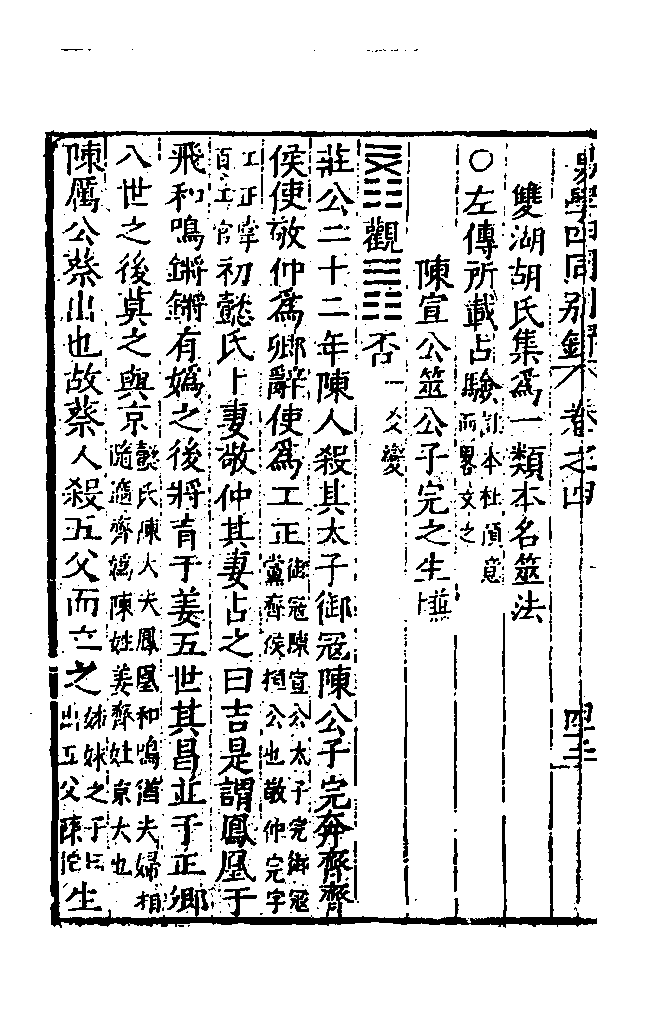 易學四同別錄 卷之四
雙湖胡氏集為一類本名筮法
○左傳所載占驗註本杜預意而畧文之
陳宣公筮公子完之生
觀 否 一爻變
莊公二十二年陳人殺其太子御冦陳公子完奔齊齊
侯使敬仲為卿辭使為工正御冦陳宣公太子完御冦黨齊侯桓公也敬仲完字
工正掌百工官初懿氏卜妻敬仲其妻占之曰吉是謂鳳凰于
飛和鳴鏘鏘有媯之後將育于姜五世其昌並于正卿
八世之後莫之與京懿氏陳大夫鳳凰和鳴猶夫婦相隨適齊媯陳姓姜齊姓京大也
陳厲公蔡出也故蔡人殺五父而立之姊妹之子曰出五父陳佗生